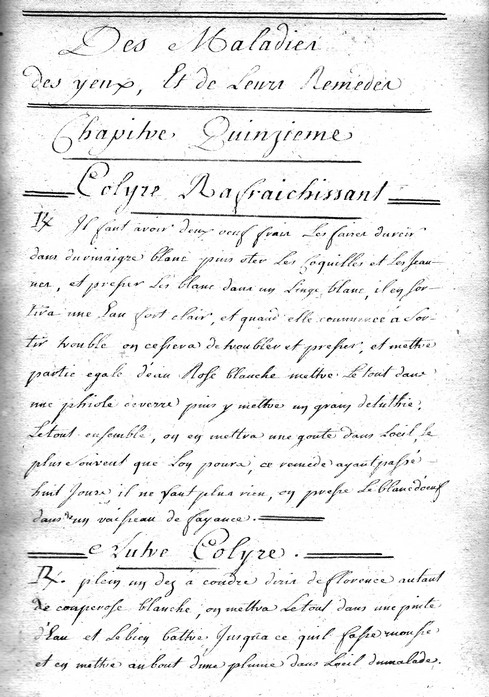 Des Maladies
des yeux, Et de Leurs Remedes
Chapitre Quinzieme
Colyre Rafraichissant
Il faut avoir deux oeuf frais Les faires durcir
dans du vinaigre blanc puis oter Les Coquilles et Les Jeau-
nes, et presser Les blanc dans un Linge blanc, il en sor-
tira une Eau fort clair, et quand elle commence a Sor-
tir trouble on cessera de troubler et presser, et mettre
partie egale d'eau Rose blanche mettre Le tout dans
une phiole de verre puis y mettre un grain de tuthie,
Le tout ensemble, on en mettra une goute dans L'oeil, le
plus souvent que Lon poura, ce remede ayant passé
huit Jours il ne vaut plus rien, on presse Le blanc d'oeuf
dans un vaisseau de fayance.
Autre Colyre.
plein un dez à coudre d'iris de florence autant
de couperose blanche, on mettra Le tout dans une pinte
d'Eau et Le bien battre Jusqu'a ce quil fasse mousse
et en mettre au bout d'une plume dans L'oeil du malade.